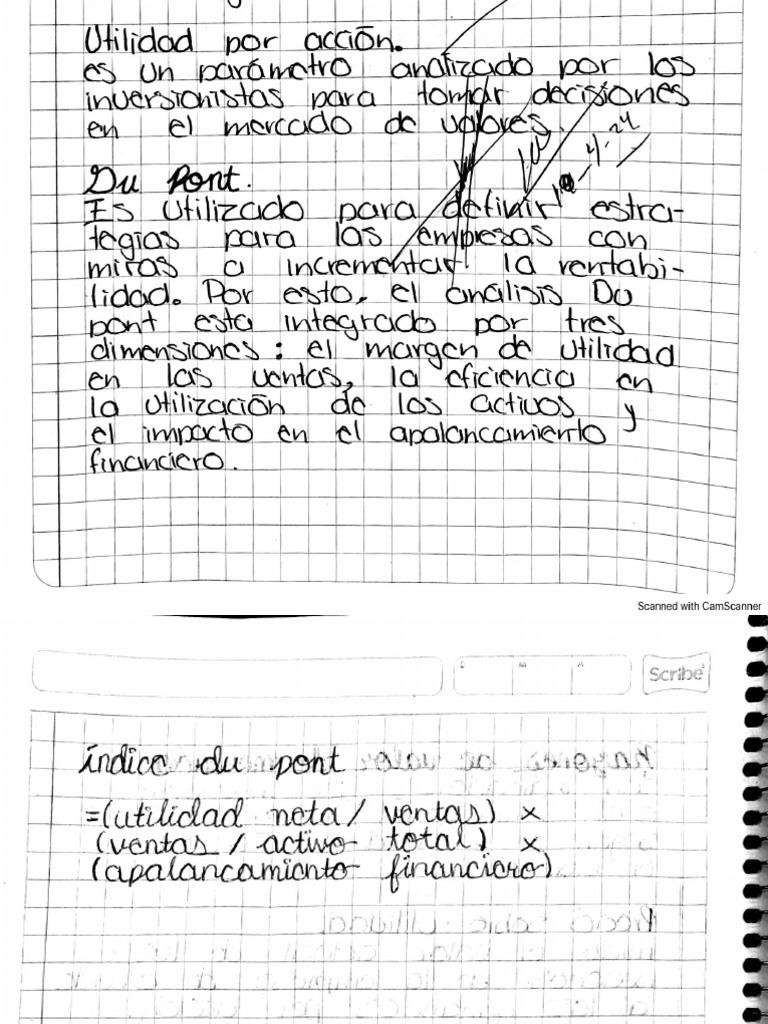 Utilidad por acción.
es un parámetro analizado por los
inversionistas para tomar decisiones
en el mercado de valores.
Du Pont.
Es utilizado para definir estra-
tegias para las empresas con
miras a incrementar la rentabi-
lidad. Por esto, el análisis Du
pont esta integrado por tres
dimensiones: el margen de utilidad
en las ventas, la eficiencia en
la utilización de los activos y
el impacto en el apalancamiento
financiero.
Scanned with CamScanner
D M A
Scribe
índice du pont
=(utilidad neta / ventas) x
(ventas / activo total) x
(apalancamiento financiero)